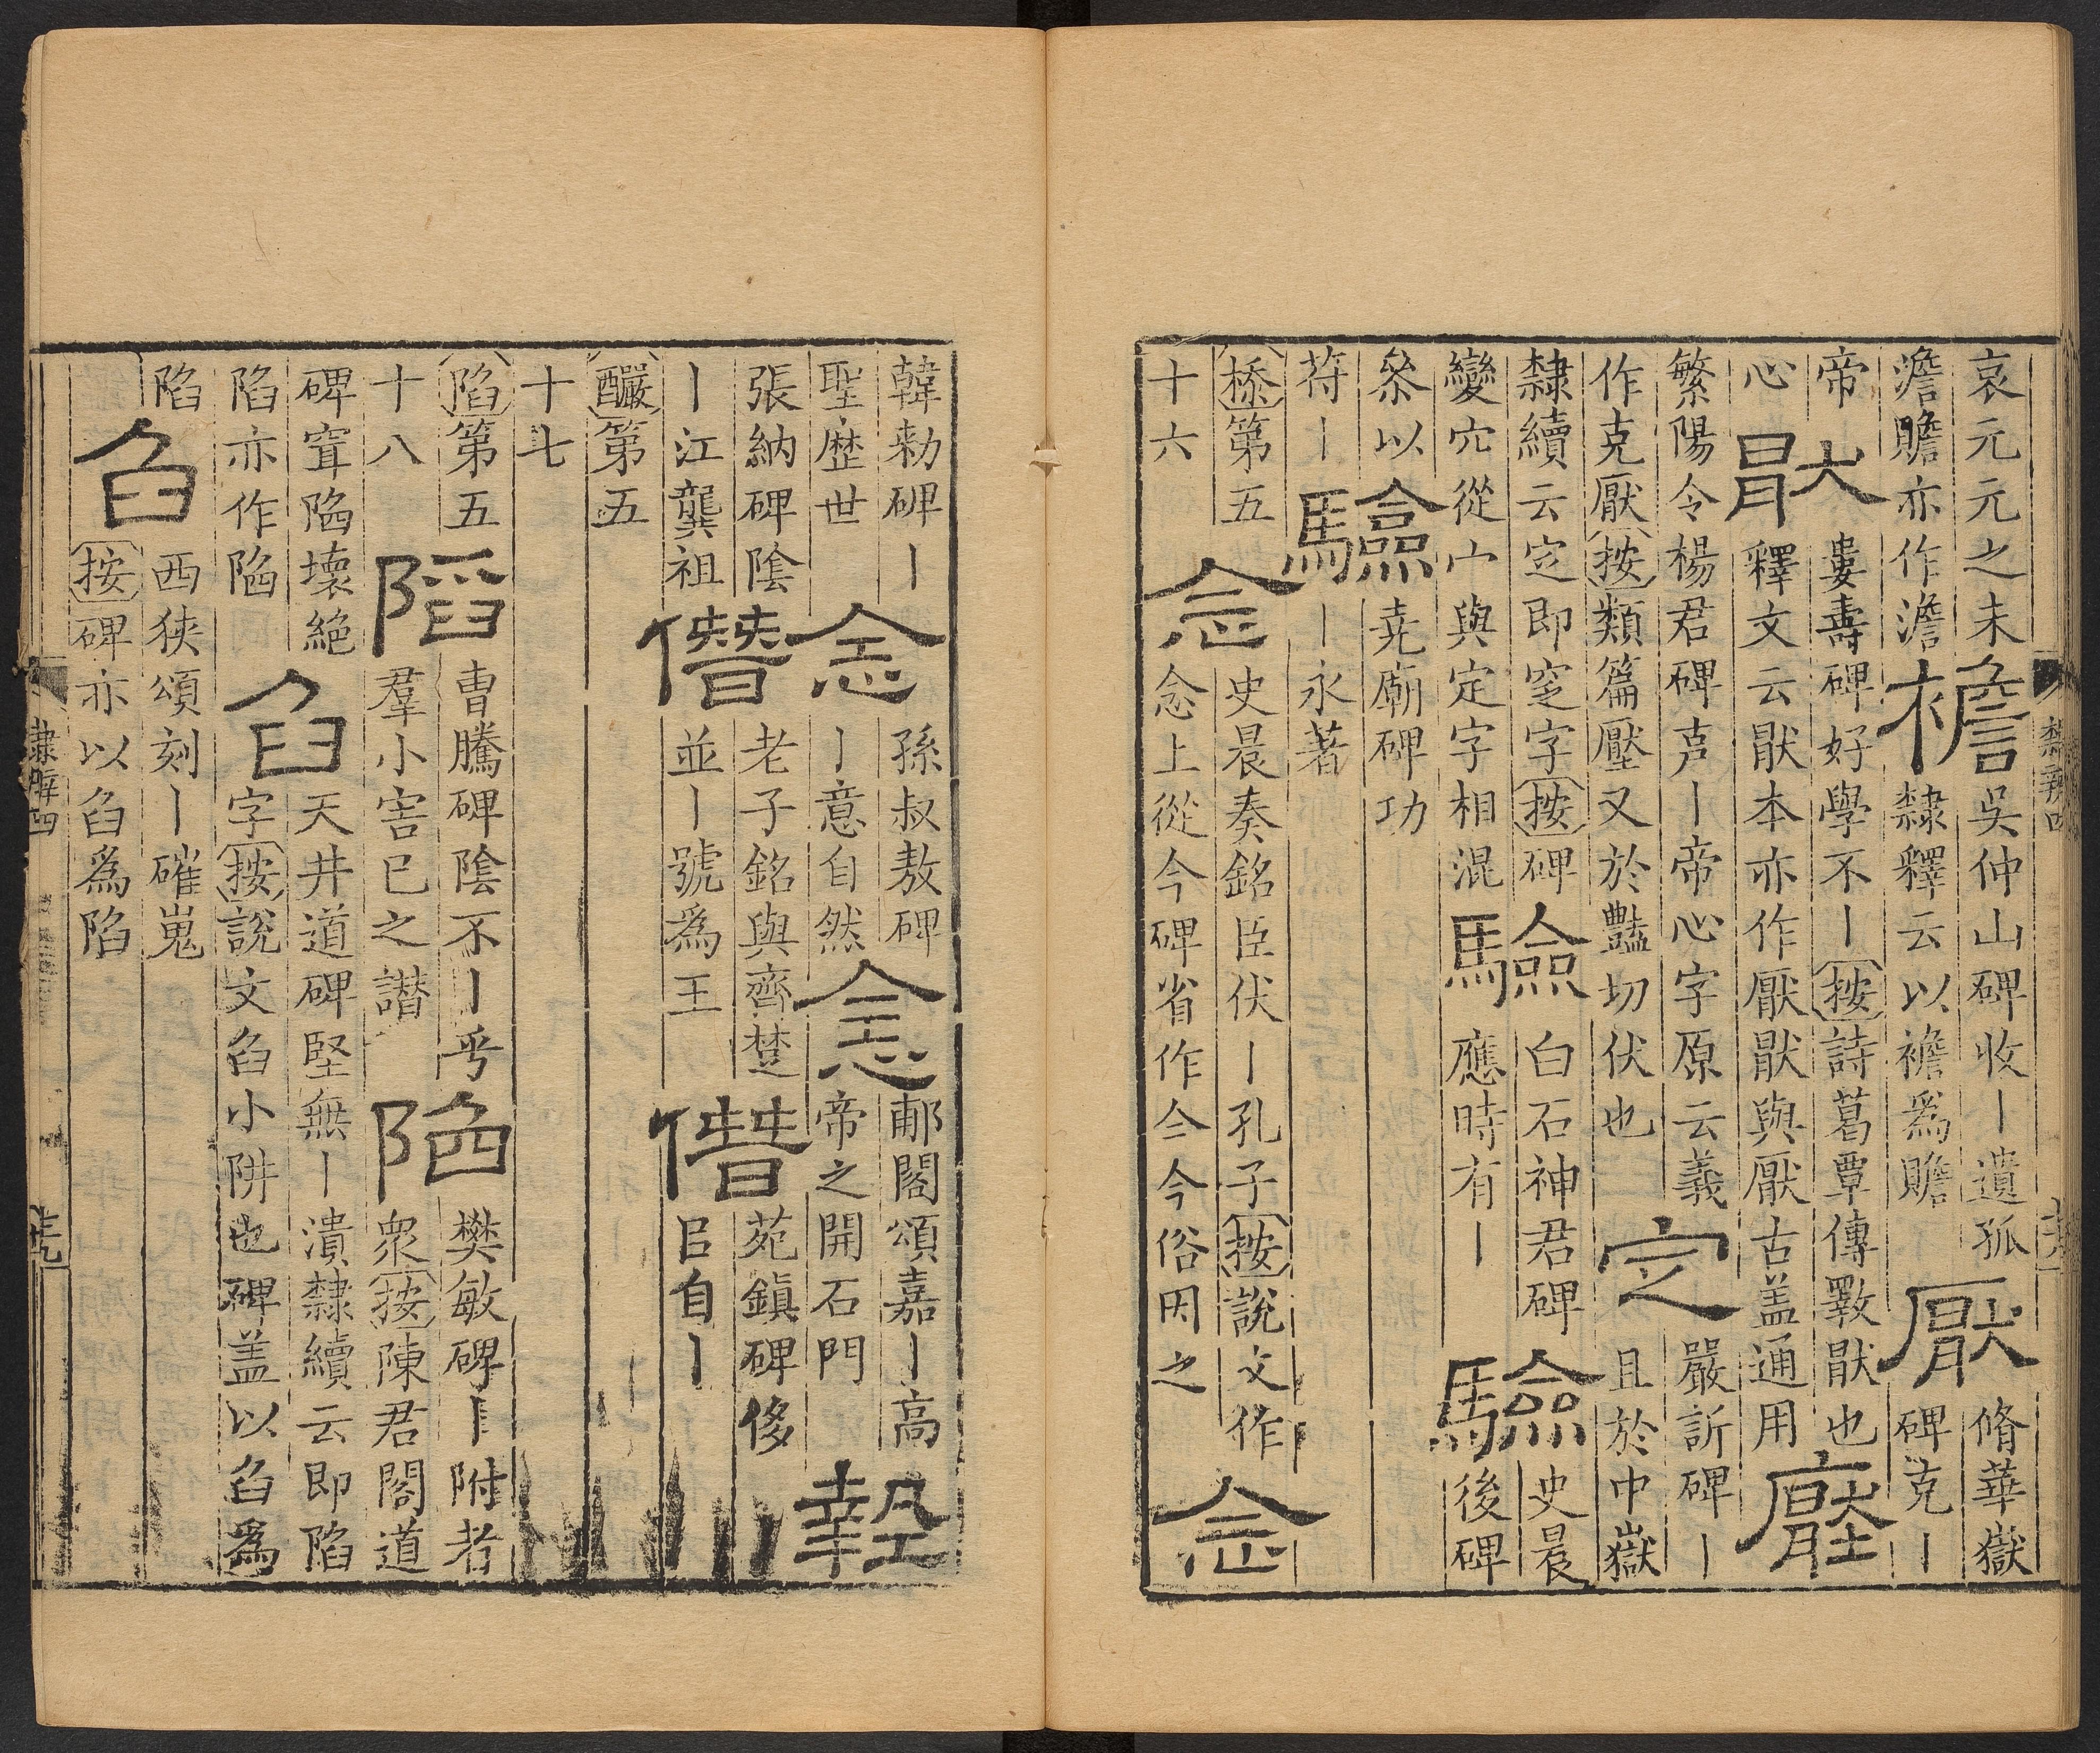 哀元元之未
澹贍亦作澹
襜
吳仲山碑收丨遺孤
隸釋云以襜爲贍
厭
脩華嶽
碑克丨
帝
心
猒
婁壽碑好學不丨按詩葛覃傳斁猒也
釋文云猒本亦作厭猒與厭古盖通用
壓
繁陽令楊君碑声丨帝心字原云義
作克厭按類篇壓又於豔切伏也
㝎
嚴訢碑丨
且於中嶽
隸續云㝎即窆字按碑
變穴從宀與定字相混
驗
白石神君碑
應時有丨
驗
史晨
後碑
叅以
苻丨
驗
堯廟碑功
丨永著
㮇第五
十六
念
史晨奏銘臣伏丨孔子按說文作
念上從今碑省作亼今俗因之
念
韓勑碑丨
聖歴世
念
孫叔敖碑
丨意自然
念
郙閣頌嘉丨高
帝之開石門
墊
張納碑陰
丨江龔祖
僭
老子銘與齊楚
並丨號爲王
僭
苑鎮碑侈
㠯自丨
釅第五
十七
陷第五
十八
陷
曹騰碑陰不丨丨乎
羣小害巳之譖
陷
樊敏碑丨附者
衆按陳君閣道
碑窅䧟壞絕
陷亦作䧟
臽
天井道碑堅無丨潰隸續云即陷
字按說文臽小阱也碑盖以臽爲
陷
臽
西狹頌刻丨磪嵬
按碑亦以臽爲陷
隸辨四
隸辨四